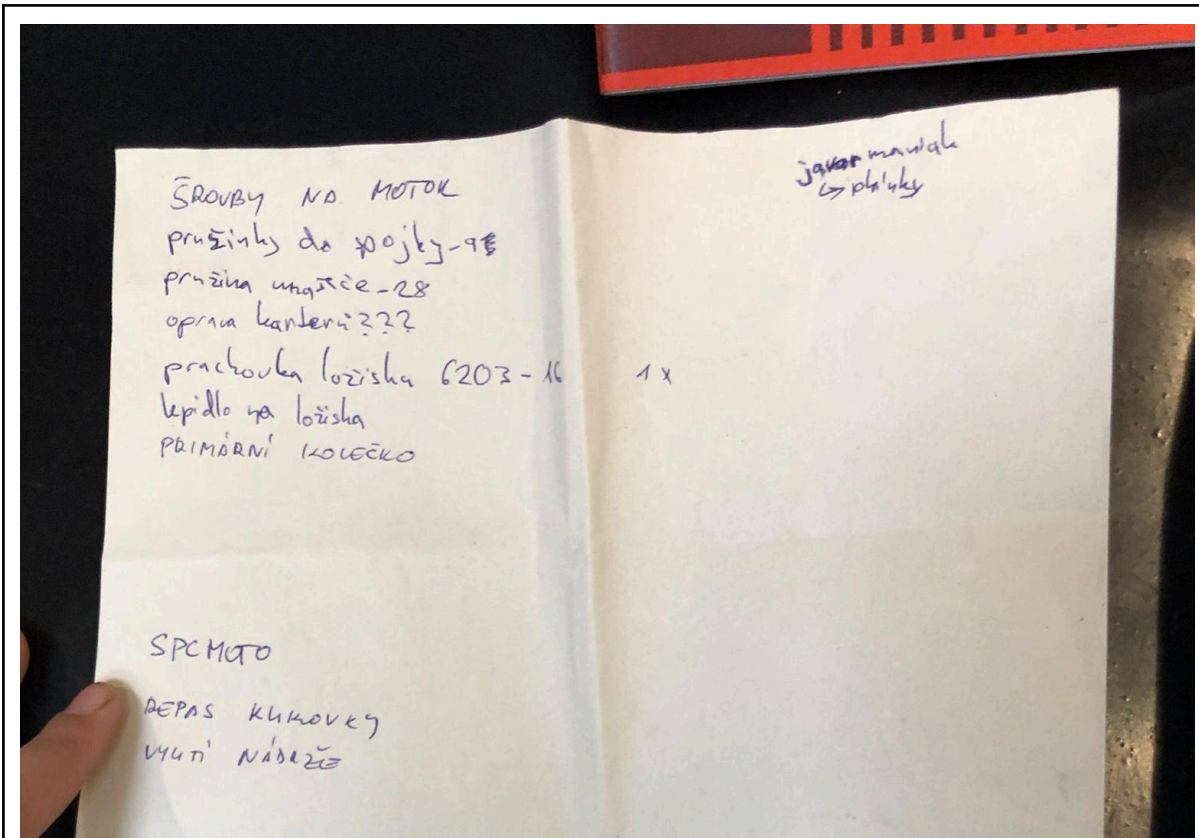 ŠROUBY NA MOTOR
pružinky do spojky-
pružina unašeče-28
oprava karteru???
prachovka ložiska 6203-16 1x
lepidlo na ložiska
PRIMÁRNÍ KOLEČKO
SPCMOTO
REPAS KLIKOVKY
VYLITÍ NÁDRŽE
jawamaniak
↳ plánky